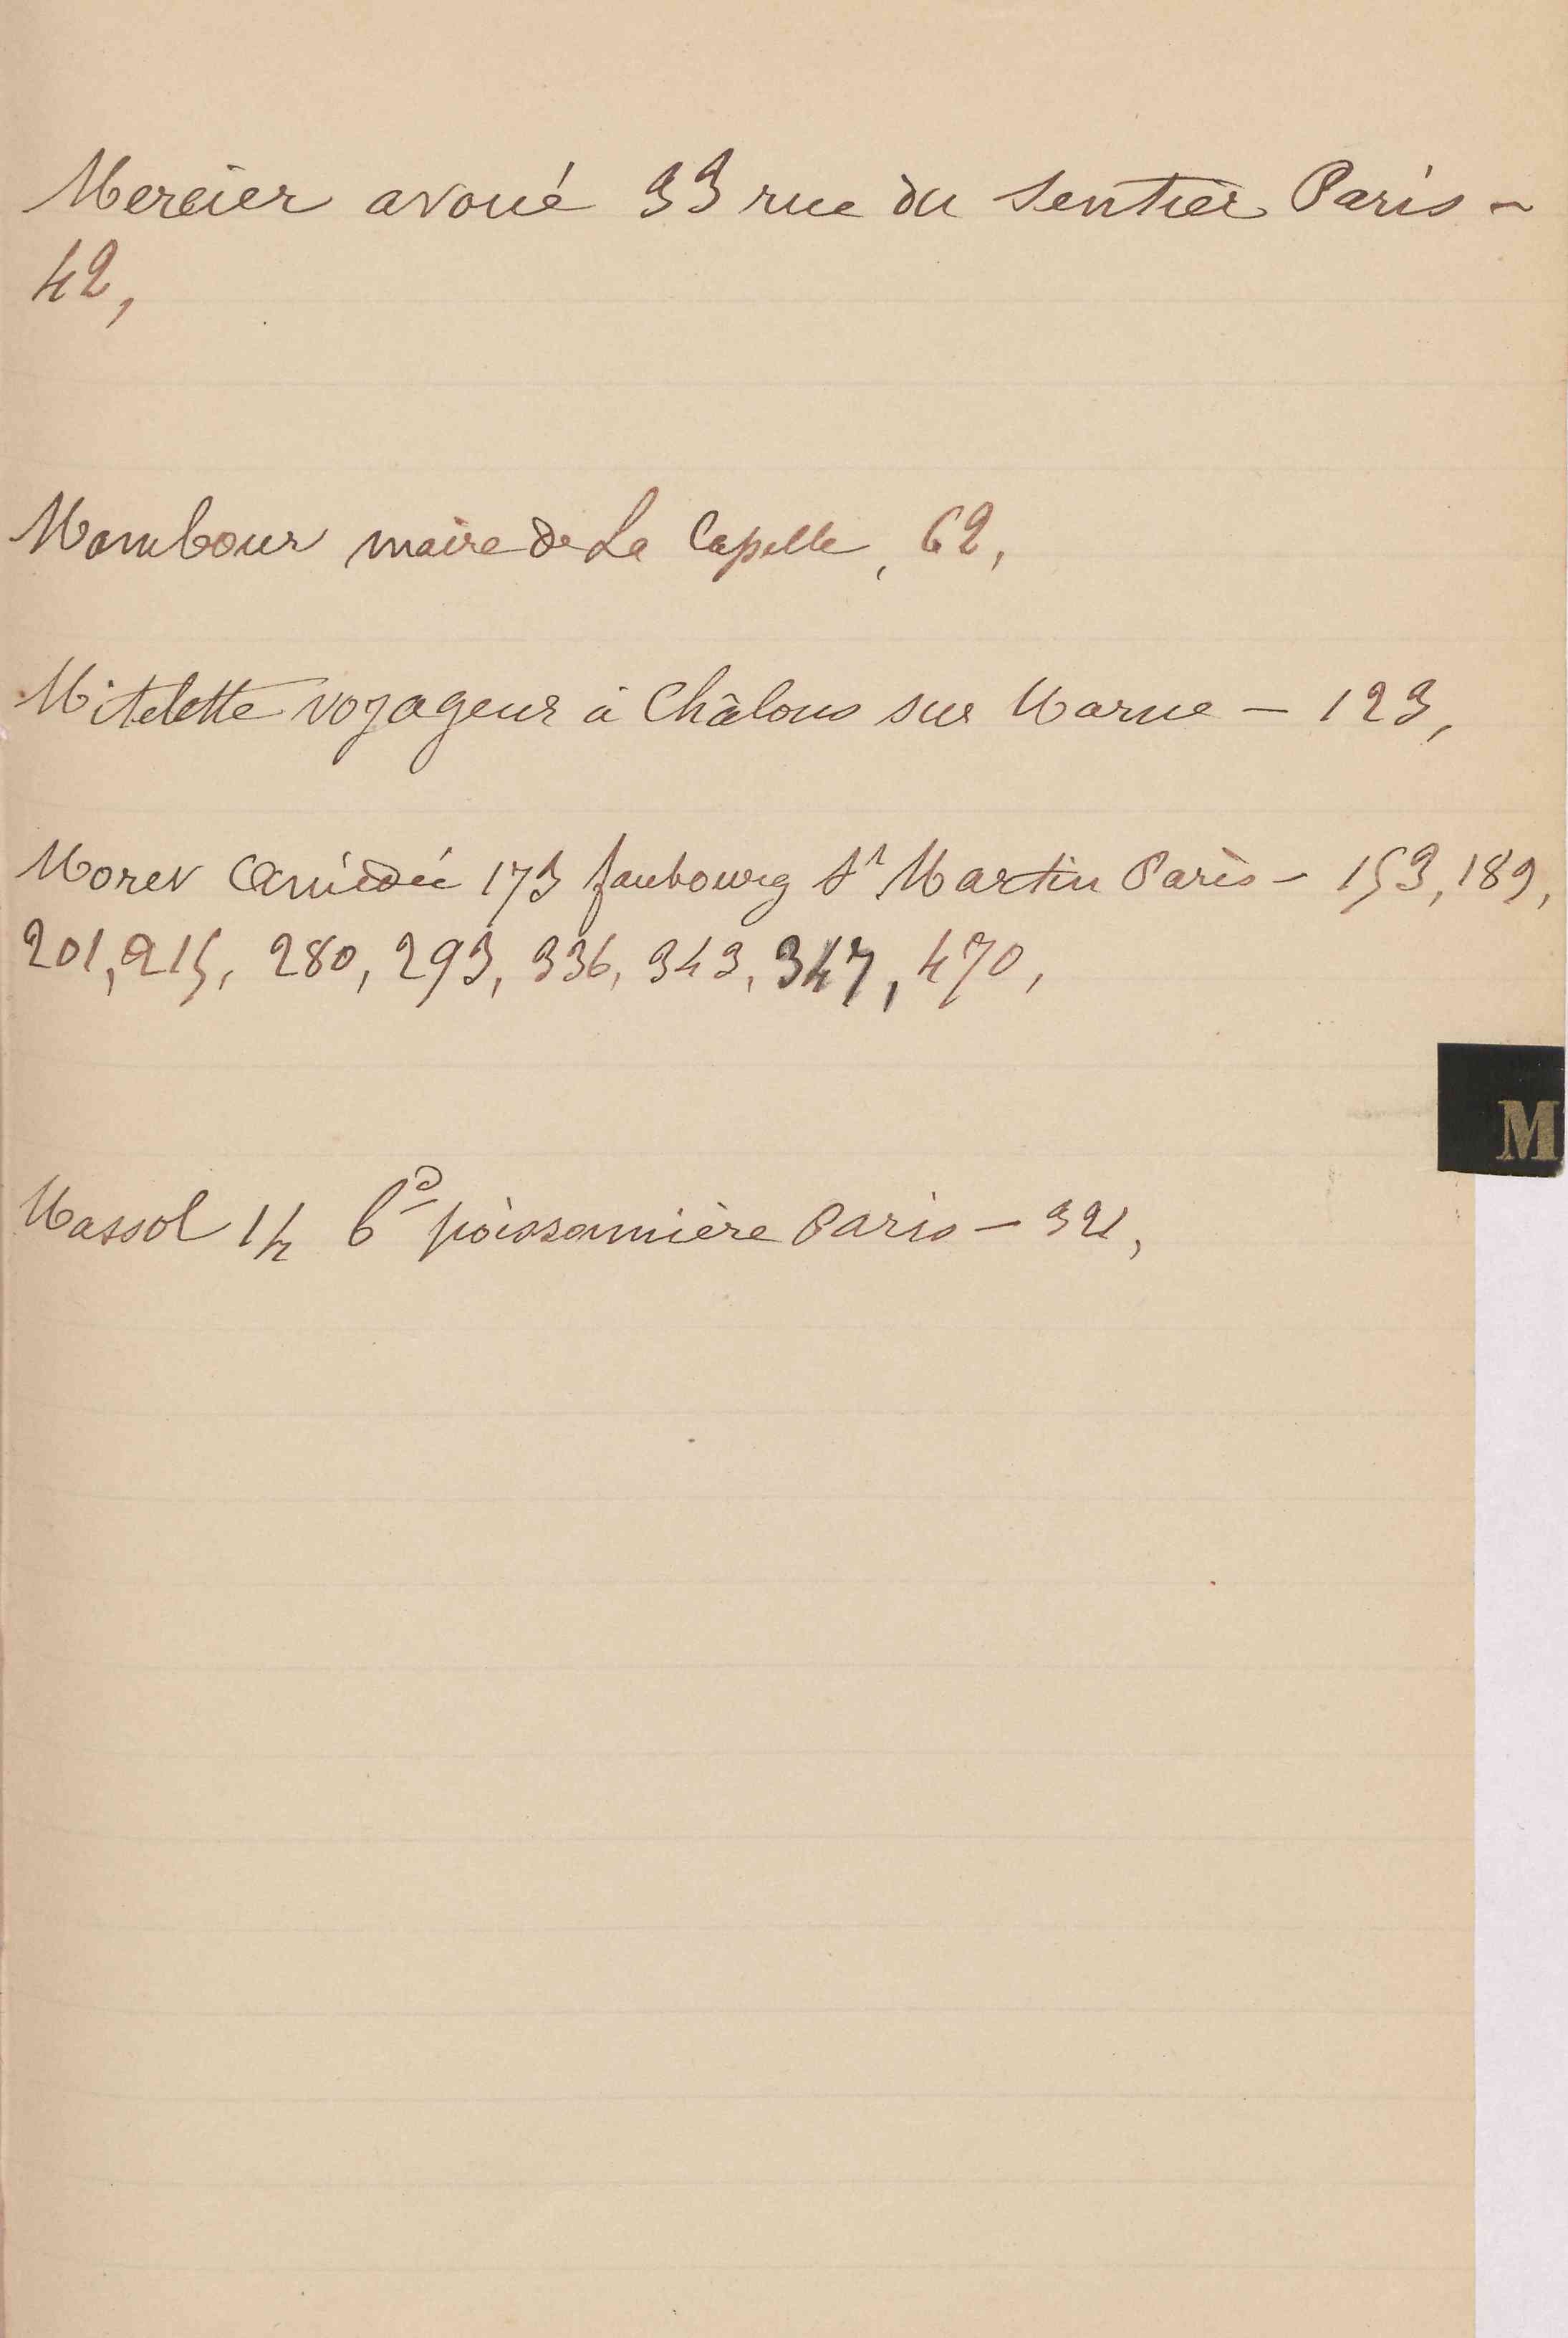 Mercier avoué 33 rue du Sentier Paris -
42,
Mambour maire de La Capelle, 62,
Mitelette voyageur à Châlons sur Marne - 123,
Moret Amédée 173 faubourg St Martin Paris - 153, 189,
201, 215, 280, 293, 336, 343, 347, 470,
M
Massol 14 bd poissonnière Paris - 321,